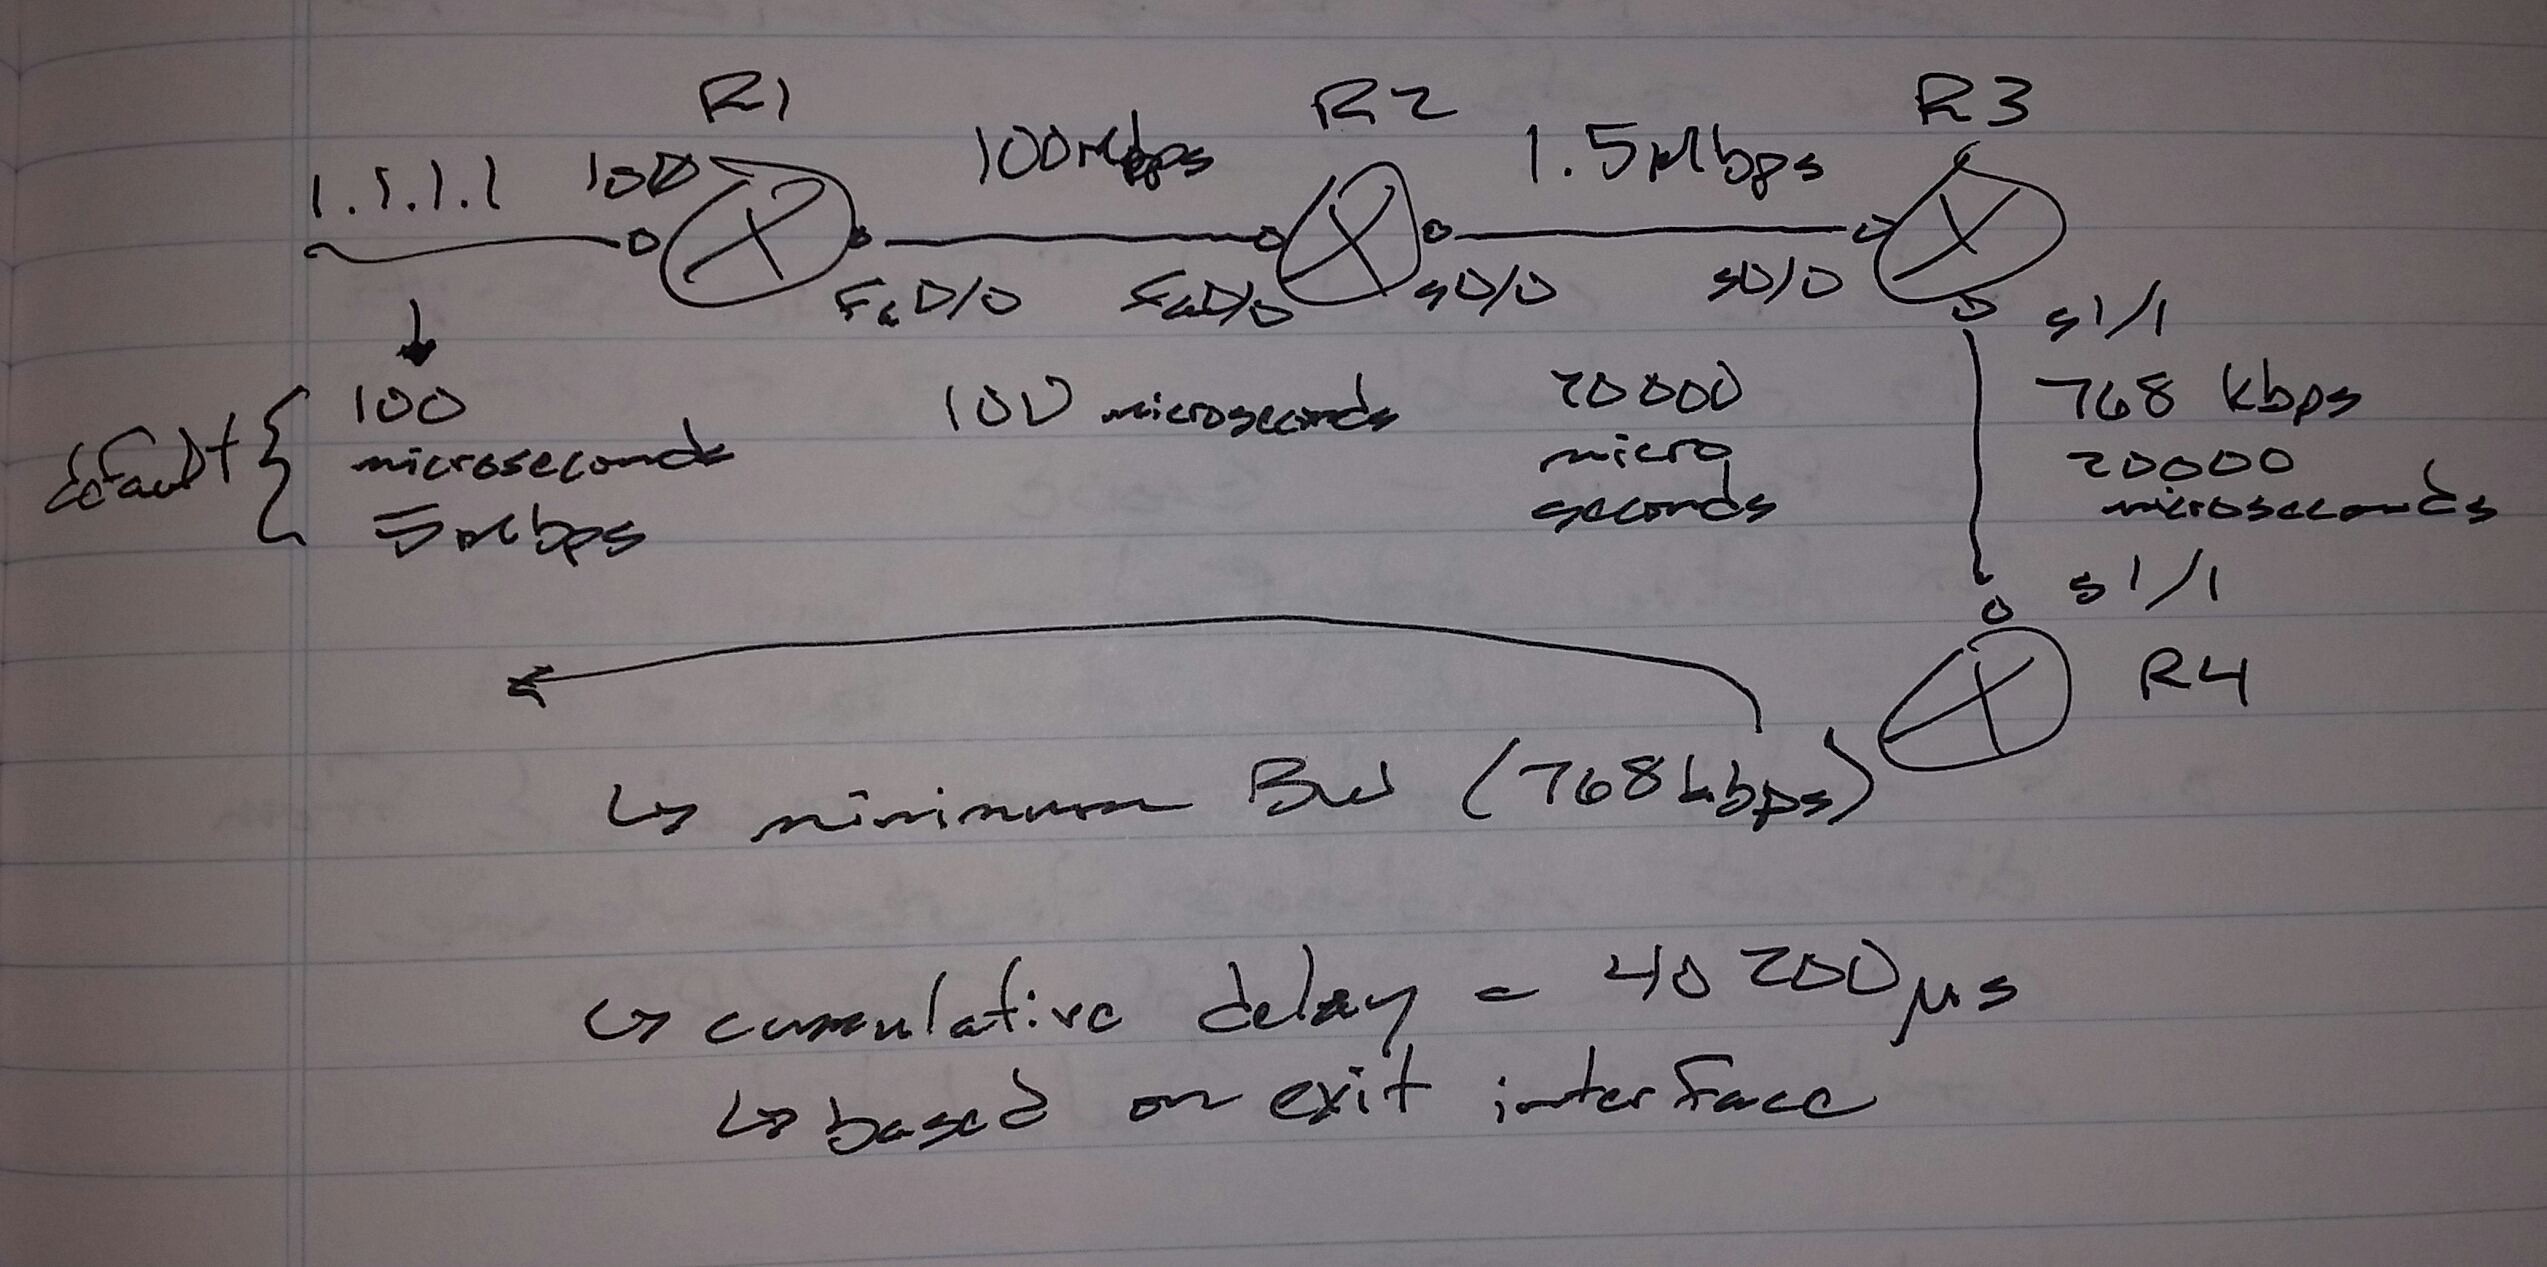 R1
R2
R3
1.1.1.1
100Mbps
1.5Mbps
Fa0/0
Fa0/0
s0/0
s0/0
s1/1
default
100
microseconds
5Mbps
100 microseconds
20000
micro
seconds
768 kbps
20000
microseconds
s1/1
R4
↳ minimum BW (768kbps)
↳ cumulative delay = 40200μs
↳ based on exit interface